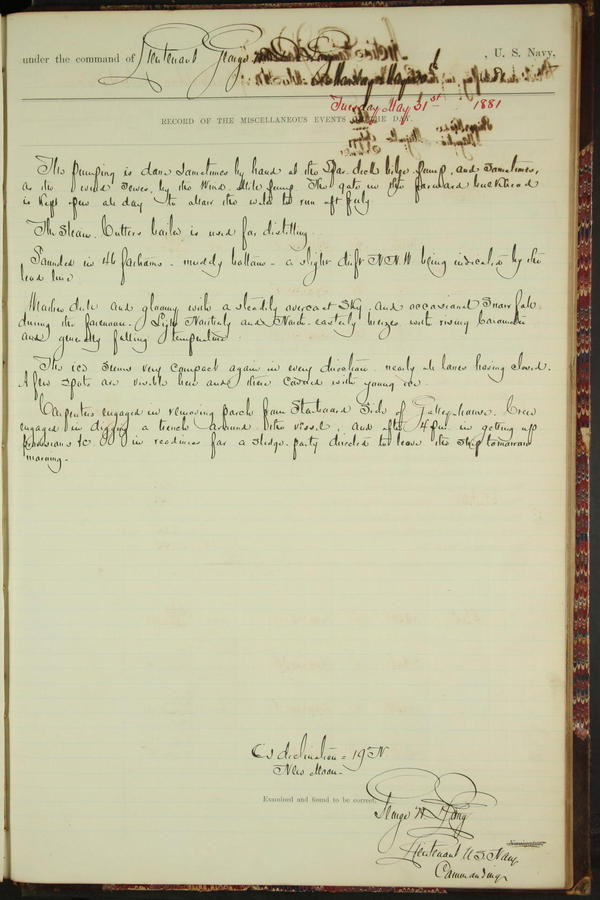 under the command of Lieutenant George , U. S. Navy,
Tuesday May 31st 1881
RECORD OF THE MISCELLANEOUS EVENTS OF THE DAY.
The pumping is done sometimes by hand at the Spar deck bilge pump, and sometimes,
as the wind serves, by the Wind Mill pump. The gate in the forward bulkhead
is kept open all day to allow the water to run aft freely
The Steam Cutters boiler is used for distilling
Sounded in 46 fathoms - muddy bottom - a slight drift N.N.W being indicated by the
lead line
Weather dull and gloomy with a steadily overcast sky and occasional Snow fall
during the forenoon. Light Northerly and North-easterly breezes with rising barometer
and generally falling temperature
The ice seems very compact again in every direction nearly all lanes having closed.
A few spots are visible here and there covered with young ice
Carpenters engaged in removing porch from Starboard Side of Galley-house. Crew
engaged in digging a trench around the vessel, and after 4 pm in getting up
provisions &c in readiness for a sledge party directed to leave the ship tomorrow
morning.
☾'s declination = 19° N.
New Moon.
Examined and found to be correct.
George W. De Long
Lieutenant U.S. Navy
Navigator.
Commanding